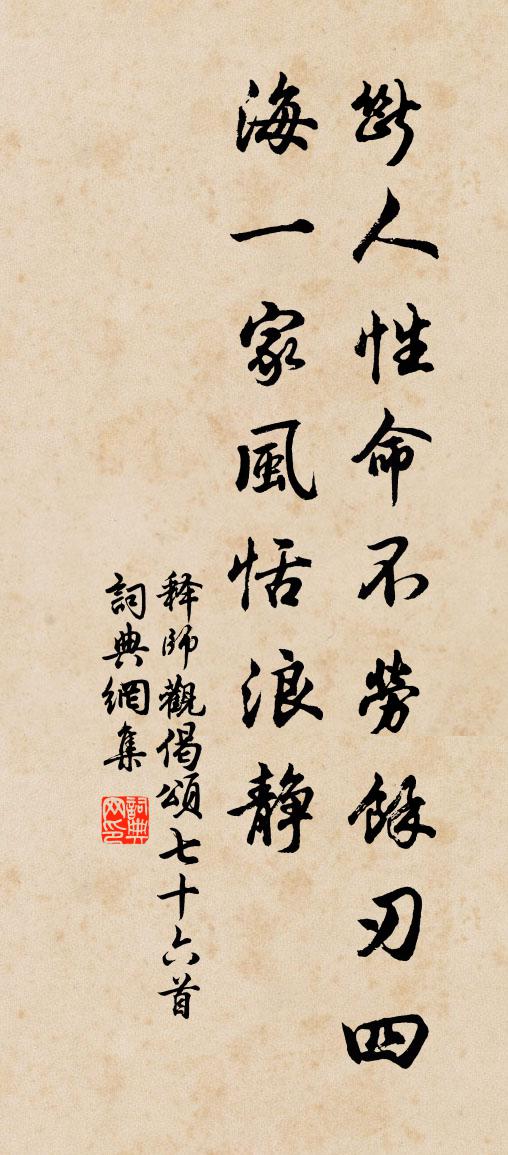 斷人性命不勞餘刃四
海一家風恬浪静
释師觀偈頌七十六首
詞典網集
詞典网印